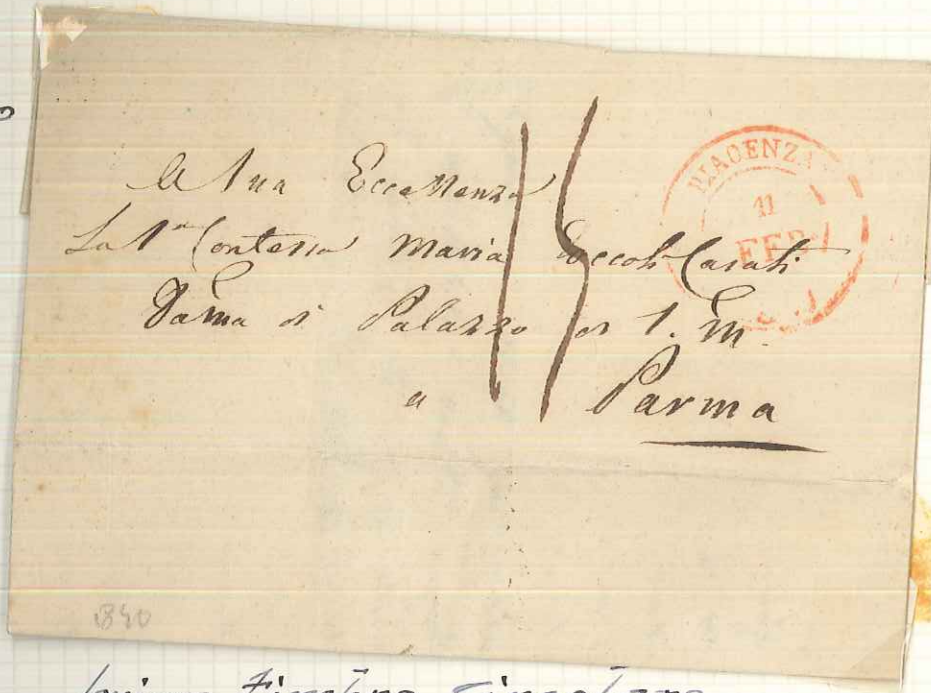 A Sua Eccellenza
La S.ra Contessa Maria Casati
Dama di Palazzo di S. M.
a Parma
15
PIACENZA
11
FEB
1840
primo timbro circolare